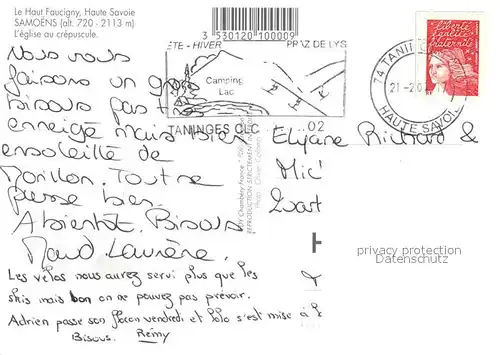 Le Haut Faucigny, Haute Savoie
SAMOËNS (alt. 720 - 2113 m)
L'église au crépuscule.
3 530120 100009
ÉTE - HIVER
PRAZ DE LYS
Camping
Lac
TANINGES CLC
02
74 TANINGES
21-2-0
HAUTE SAVOIE
Liberté
égalité
fraternité
Nous vous
faisons un gros
bisous pas
enneigé mais bien
ensoleillé de
Morillon. Toute
passe bien.
A bientôt. Bisous
Maud Laurène.
Les vélos nous aurez servi plus que les
skis mais bon on ne pouvez pas prévoir.
Adrien passe son flocon vendredi et Lolo s'est mise à l
Bisous. Rémy
REPRODUCTION STRICTEMENT
Elyane Richard &
Mic'
privacy protection
Datenschutz